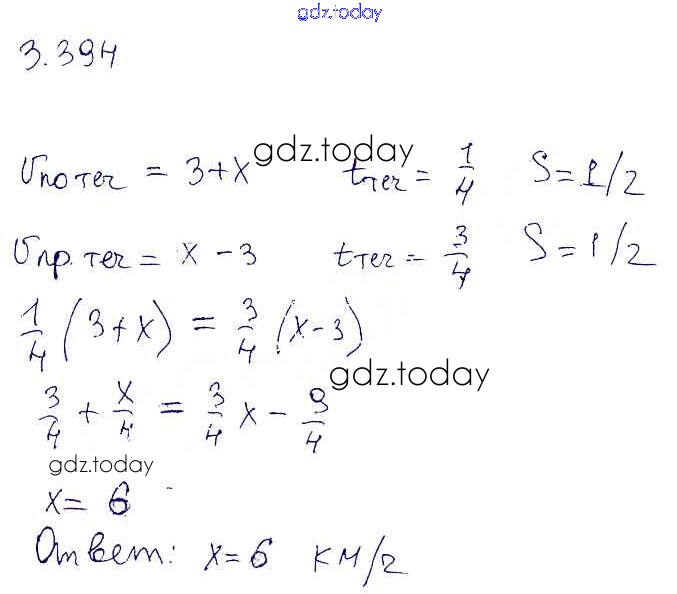 gdz.today
3.394
υпо теч = 3+x gdz.today tтеч = 1/4 S = 1/2
υпр. теч = x - 3 tтеч = 3/4 S = 1/2
1/4 (3+x) = 3/4 (x-3)
gdz.today
3/4 + x/4 = 3/4 x - 9/4
gdz.today
x = 6
Ответ: x=6 км/г